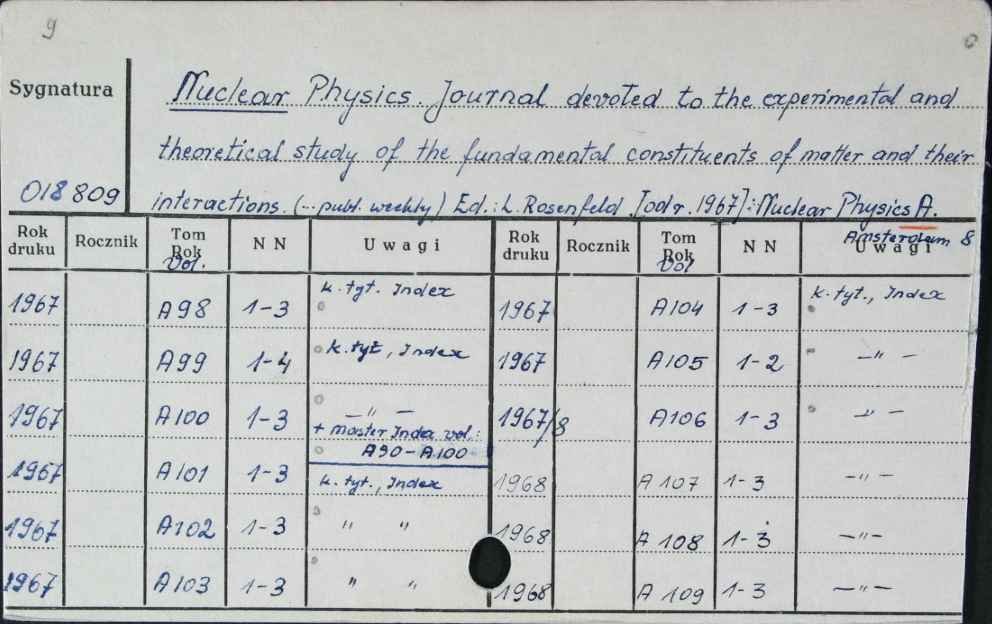 9
Sygnatura
Nuclear Physics. Journal devoted to the experimental and
theoretical study of the fundamental constituents of matter and their
018 809
interactions. (... publ. weekly) Ed.: L. Rosenfeld [od r. 1967]: Nuclear Physics A.
Amsterdam 8
Rok druku Rocznik Tom Rok Vol. NN Uwagi Rok druku Rocznik Tom Rok Vol NN Uwagi
1967 A98 1-3 k. tyt. Index 1967 A104 1-3 k. tyt., Index
1967 A99 1-4 k. tyt, Index 1967 A105 1-2 —"—
1967 A100 1-3 —"— 1967/8 A106 1-3 —"—
+ master Index vol.:
A90-A100
1967 A101 1-3 k. tyt., Index 1968 A107 1-3 —"—
1967 A102 1-3 " " 1968 A 108 1-3 —"—
1967 A103 1-3 " " 1968 A 109 1-3 —"—